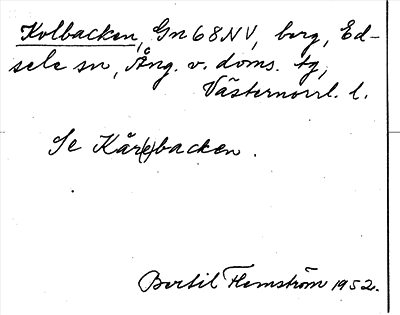 Kolbacken, Gn 68 NV, berg, Ed-
sele sn, Ång. v. doms. tg,
Västernorrl. l.
Se Kår(e)backen.
Bertil Flemström 1952.